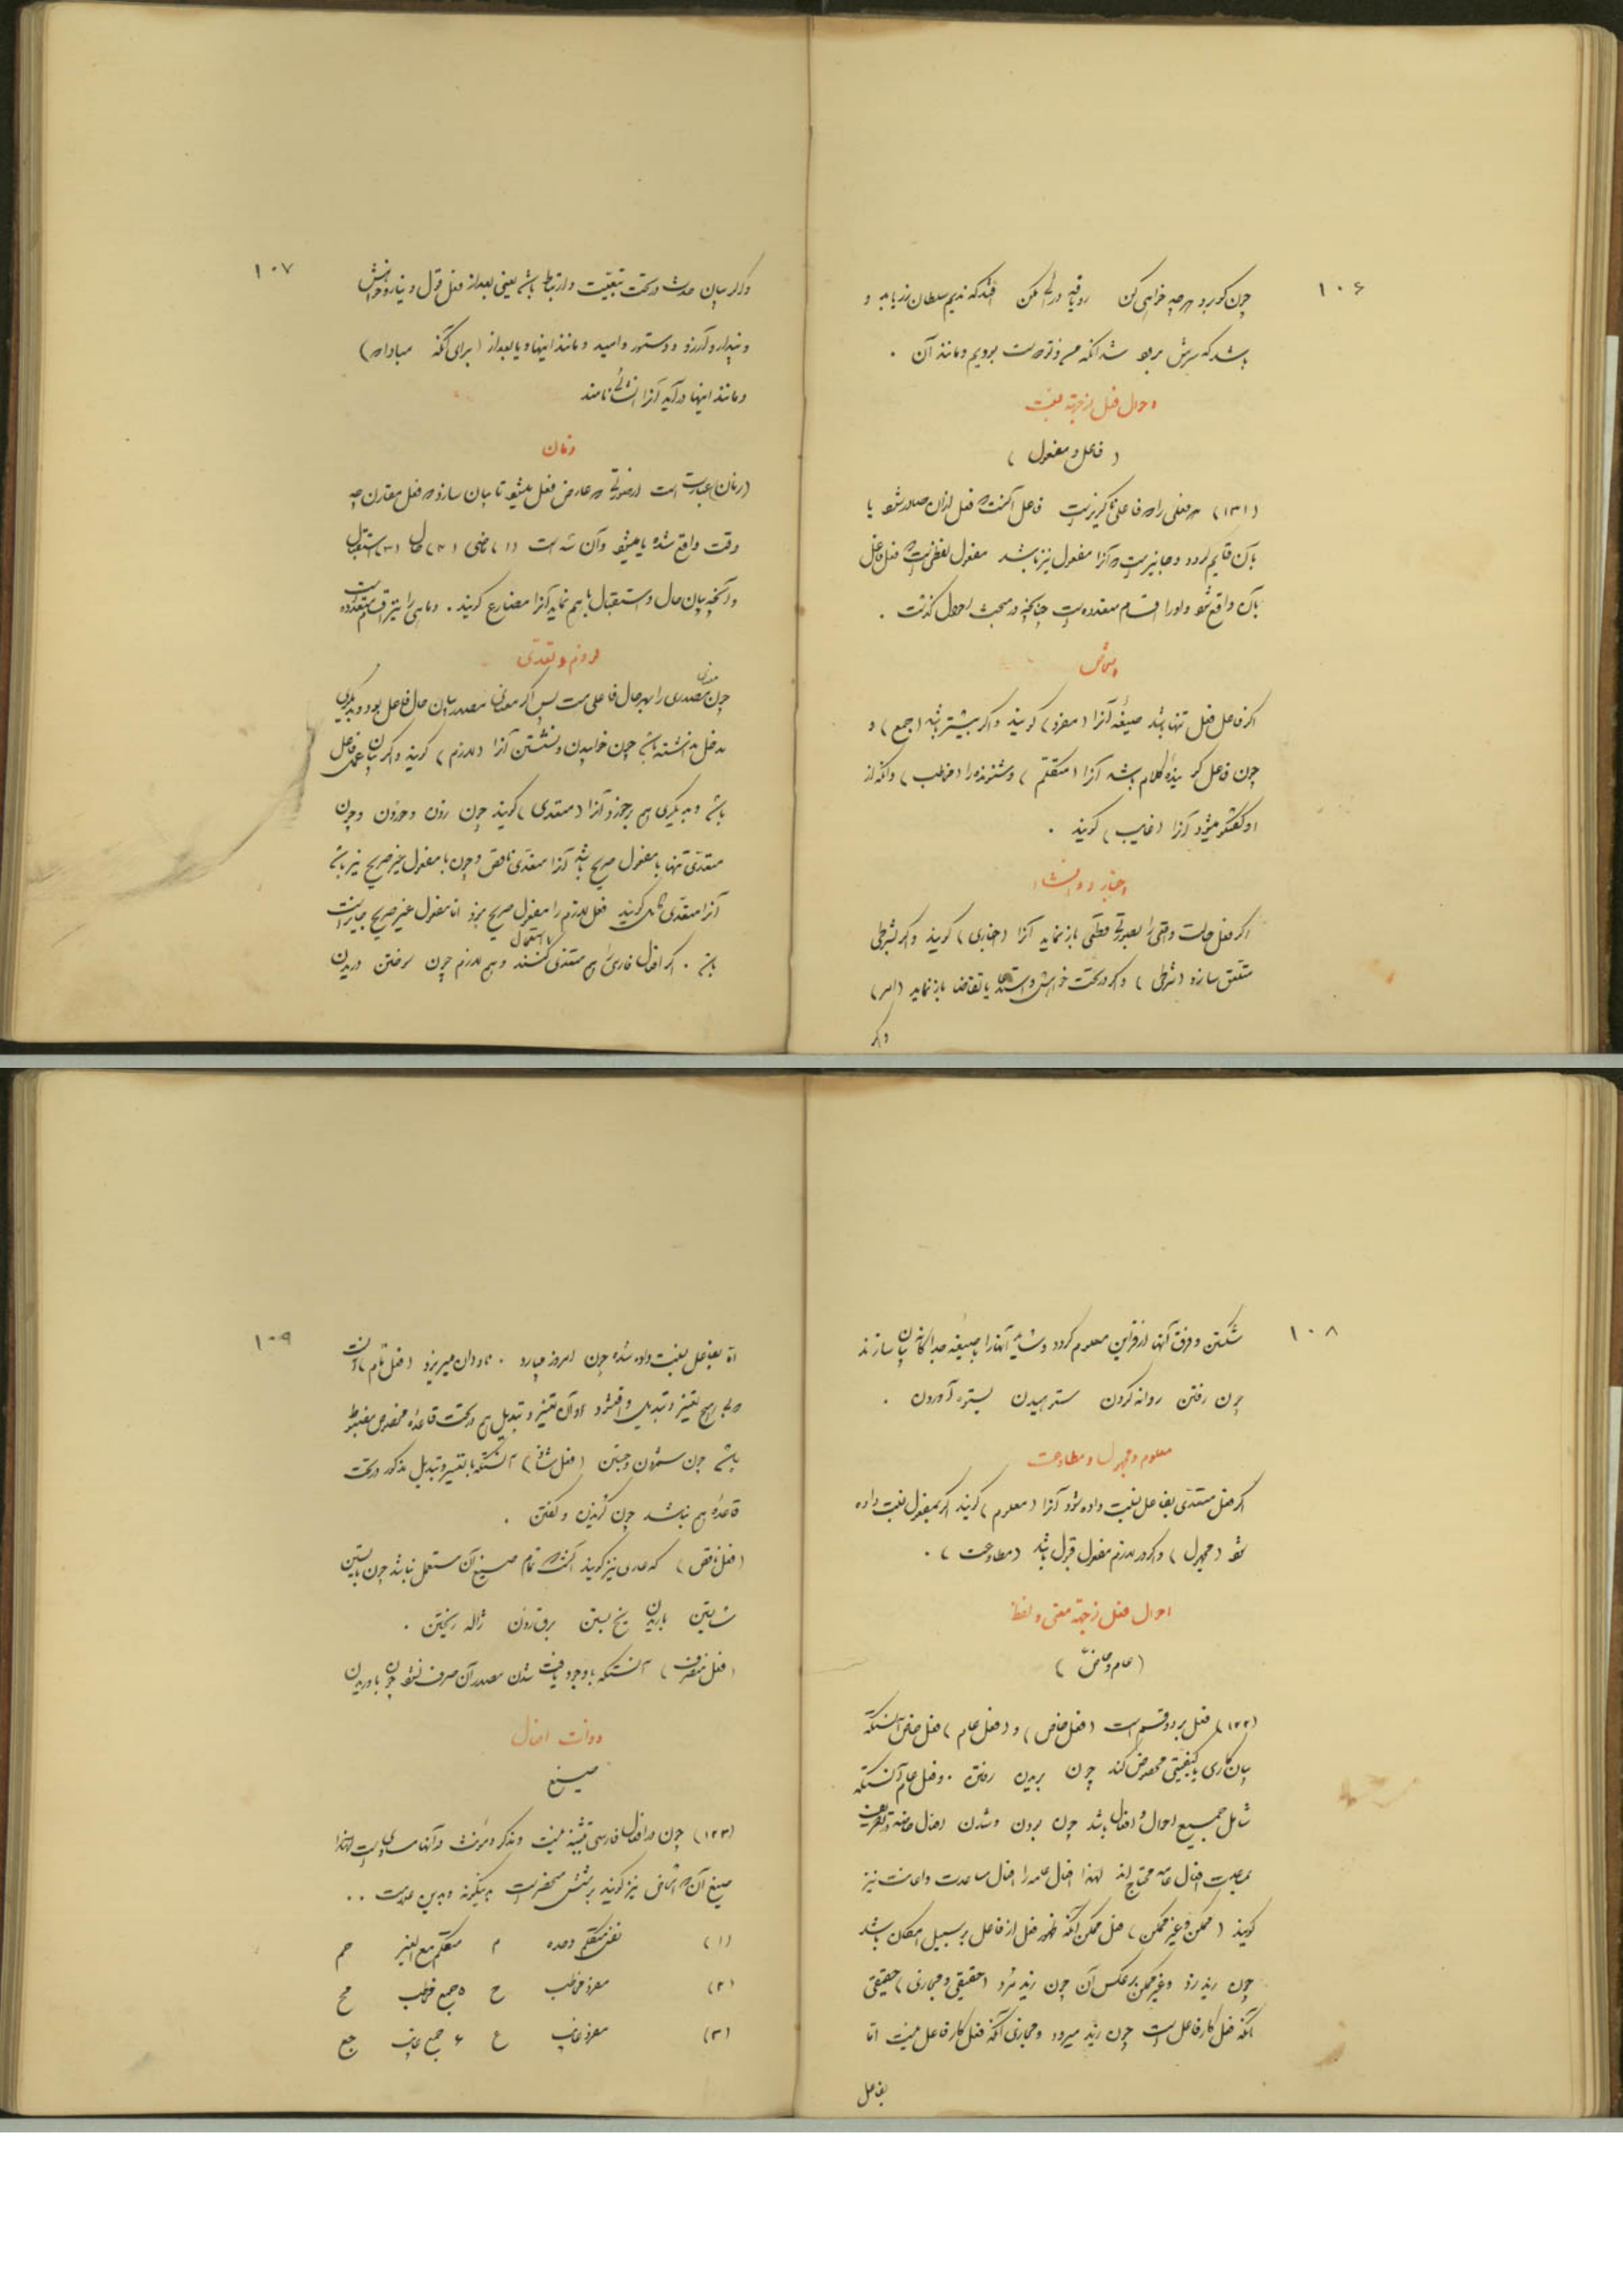 ۱۰۶
چون گوید و هرچه خواهی کن روباقیه ورا کن افتد که ندیم سلطان زر بیابد و
باشد که سرش برود شد آنکه میسر و ترست برویم و مانند آن .
احوال فعل از جهة نسبت
( فاعل و مفعول )
(۱۳۱) هر فعلی را فاعلی ناگزیرست فاعل آنست که فعل از آن صادر شود یا
بآن قایم گردد و جایزست که آنرا مفعول نیز باشد مفعول لفظی است که فعل فاعل
بآن واقع شود و او را اقسام متعدده است چنانکه در مبحث احوال گذشت .
اشخاص
اگر فاعل فعل تنها باشد صیغهٔ آنرا (مفرد) گویند و اگر بیشتر باشد (جمع) و
چون فاعل گویندهٔ کلام باشد آنرا (متکلم) و شنونده را (مخاطب) و آنکه از
او گفتگو میشود آنرا (غایب) گویند .
اخبار و انشاء
اگر فعل حالت واقعی را بصورت قطعی باز نماید آنرا (اخباری) گویند و اگر بشرطی
متعلق سازد (شرطی) و اگر در تحت خواهش و استدعا یا تقاضا باز نماید (امر)
و اگر
۱۰۷
و اگر بیان حدث در تحت تبعیت و ارتباط باشد یعنی بعد از فعل قول و نیاز و خواهش
و پندار و آرزو و دستور و امید و مانند اینها و یا بعد از (برای آنکه مبادا که)
و مانند اینها در آید آنرا انشائی نامند
زمان
(زمان) عبارت است از صورتی که عارض فعل میشود تا بیان سازد که فعل مقارن چه
وقت واقع شده یا میشود و آن سه است (۱) ماضی (۲) حال (۳) استقبال
و آنچه بیان حال و استقبال با هم نماید آنرا مضارع گویند . و ماضی را نیز اقسام متعدده است
لزوم و تعدی
چون معنی مصدری را بهر حال فاعلی هست پس اگر معنای مصدر بیان حال فاعل بود و بدیگری
مدخل نداشته باشد چون خوابیدن و نشستن آنرا (لازم) گویند و اگر بیان عمل فاعل
باشد و بدیگری هم برخورد آنرا (متعدی) گویند چون زدن و خوردن و چون
متعدی تنها با مفعول صریح باشد آنرا متعدی ناقص و چون با مفعول غیر صریح نیز باشد
آنرا متعدی کامل گویند فعل لازم را مفعول صریح نبود اما مفعول غیر صریح جایز است
باشد . اکثر افعال فارسی را هم متعدی استعمال کنند و هم لازم چون سوختن دریدن
۱۰۸
شکستن و فرق آنها از قراین معلوم گردد و شاید آنها را با صیغهٔ جداگانه بیان سازند
چون رفتن روانه کردن ستوهیدن بستوه آوردن .
معلوم و مجهول و مطاوعت
اگر فعل متعدی بفاعل نسبت داده شود آنرا (معلوم) گویند اگر بمفعول نسبت داده
شود (مجهول) و اگر در لازم مفعول قبول باشد (مطاوعت) .
احوال فعل از جهة معنی و لفظ
( عام و خاص )
(۱۲۲) فعل بر دو قسم است (فعل خاص) و (فعل عام) فعل خاص آنستکه
بیان کاری یا کیفیتی مخصوص کند چون بریدن رفتن . و فعل عام آنستکه
شامل جمیع احوال و افعال باشد چون بودن و شدن افعال خاصه در تصریف
بمعیت افعال عامه محتاج اند لهذا افعال عامه را افعال مساعدت و اعانت نیز
گویند (ممکن و غیر ممکن) فعل ممکن آنکه ظهور فعل از فاعل بر سبیل امکان باشد
چون زید زد و غیر ممکن بر عکس آن چون زید مُرد (حقیقی و مجازی) حقیقی
آنکه فعل کار فاعل است چون زید میرود و مجازی آنکه فعل کار فاعل نیست اما
بفاعل
۱۰۹
اما بفاعل نسبت داده شده چون امروز میبارد . ناودان میریزد (فعل تام) آنست
که بی هیچ تغییر و تبدیل واقع شود و آن تغییر و تبدیل هم در تحت قاعدهٔ مخصوص مضبوط
باشد چون ستودن و جستن (فعل شاذ) آنستکه با تغییر و تبدیل مذکور در تحت
قاعدهٔ هم نباشد چون گزیدن و گفتن .
(فعل ناقص) که عاری نیز گویند آنست که تمام صیغ آن مستعمل نباشد چون بایستن
شایستن باریدن یخ بستن برق زدن ژاله ریختن .
(فعل متصرف) آنستکه با وجود یافت شدن مصدر آن صرف نشود چون باوریدن
دوات افعال
صیغ
(۱۲۳) چون در افعال فارسی تثنیه نیست و مذکر و مؤنث در آنها مساوی است لهذا
صیغ آن که اشخاص نیز گویند بر شش منحصرست بدینگونه و بدین علامت . .
(۱) نفس متکلم وحده م ۴ متکلم مع الغیر جم
(۲) مفرد مخاطب ح ۵ جمع مخاطب جح
(۳) مفرد غایب ع ۶ جمع غایب جع